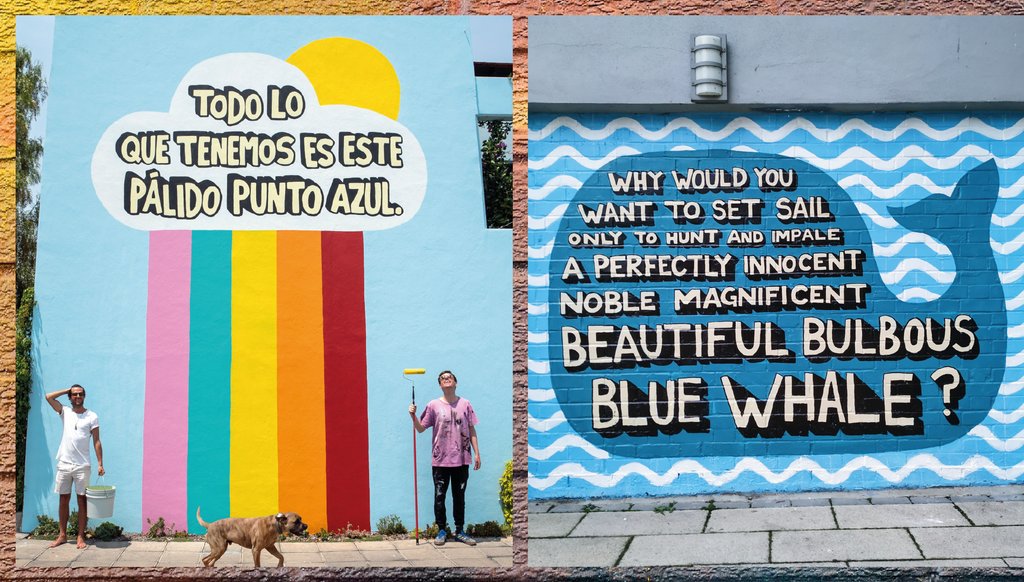 TODO LO
QUE TENEMOS ES ESTE
PÁLIDO PUNTO AZUL.
WHY WOULD YOU
WANT TO SET SAIL
ONLY TO HUNT AND IMPALE
A PERFECTLY INNOCENT
NOBLE MAGNIFICENT
BEAUTIFUL BULBOUS
BLUE WHALE?